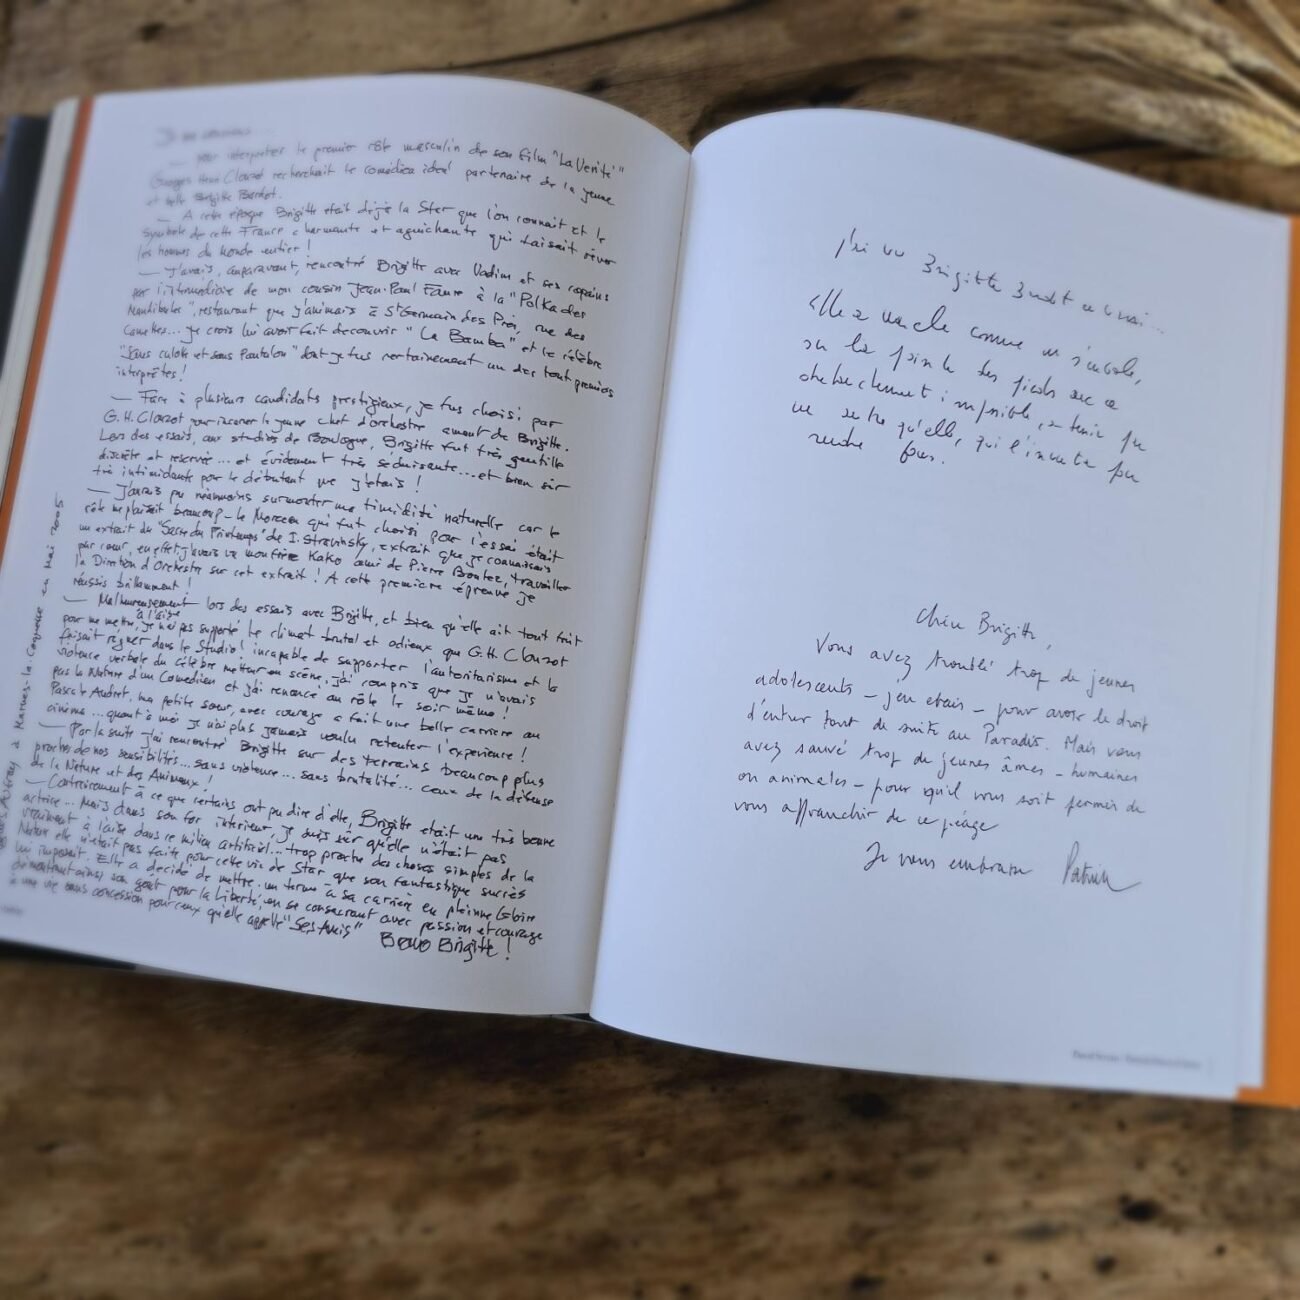 Je me souviens...
— pour interpréter le premier rôle masculin de son film "La Vérité"
Georges Henri Clouzot recherchait le comédien idéal partenaire de la jeune
et belle Brigitte Bardot.
— A cette époque Brigitte était déjà la Star que l'on connait et le
symbole de cette France charmante et aguichante qui faisait rêver
les hommes du monde entier !
— J'avais, auparavant, rencontré Brigitte avec Vadim et ses copains
par l'intermédiaire de mon cousin Jean-Paul Faure à la "Polka des
Mandibules", restaurant que j'animais à St Germain des Prés, rue des
Canettes... je crois lui avoir fait découvrir "La Bamba" et le célèbre
"Sans culotte et sans Pantalon" dont je fus certainement un des tout premiers
interprètes !
— Face à plusieurs candidats prestigieux, je fus choisi par
G.H. Clouzot pour incarner le jeune chef d'orchestre amant de Brigitte.
Lors des essais, aux studios de Boulogne, Brigitte fut très gentille
discrète et réservée... et évidemment très séduisante... et bien sûr
très intimidante pour le débutant que j'étais !
— J'avais pu néanmoins surmonter ma timidité naturelle car le
rôle me plaisait beaucoup - le Morceau qui fut choisi pour l'essai était
un extrait du "Sacre du Printemps" de I. Stravinsky, extrait que je connaissais
par cœur, en effet j'avais vu mon frère Kako ami de Pierre Boulez, travailler
la Direction d'Orchestre sur cet extrait ! A cette première épreuve je
réussis brillamment !
— Malheureusement lors des essais avec Brigitte, et bien qu'elle ait tout fait
pour me mettre à l'aise, je n'ai pas supporté le climat brutal et odieux que G.H. Clouzot
faisait régner dans le Studio ! incapable de supporter l'autoritarisme et la
violence verbale du célèbre metteur en scène, j'ai compris que je n'avais
pas la Nature d'un Comédien et j'ai renoncé au rôle le soir même !
Pascale Audret, ma petite sœur, avec courage a fait une belle carrière au
cinéma... quant à moi je n'ai plus jamais voulu retenter l'expérience !
— Par la suite j'ai rencontré Brigitte sur des terrains beaucoup plus
proches de nos sensibilités... sans violence... sans brutalité... ceux de la défense
de la Nature et des Animaux !
— Contrairement à ce que certains ont pu dire d'elle, Brigitte était une très bonne
actrice... Mais dans son for intérieur, je suis sûr qu'elle n'était pas
vraiment à l'aise dans ce milieu artificiel... trop proche des choses simples de la
Nature elle n'était pas faite pour cette vie de Star que son fantastique succès
lui imposait. Elle a décidé de mettre un terme à sa carrière en pleine Gloire
démontrant ainsi son goût pour la Liberté, en se consacrant avec passion et courage
à une vie sans concession pour ceux qu'elle appelle "Ses Amis"
Bravo Brigitte !
Marnes-la-Coquette en Mai 2005
J'ai vu Brigitte Bardot en vrai...
Elle marche comme on s'envole,
sur la pointe des pieds avec ce
détachement impossible, à tenir par
un autre qu'elle, qui l'inventa pour
rendre fous.
Chère Brigitte,
Vous avez troublé trop de jeunes
adolescents — j'en étais — pour avoir le droit
d'entrer tout de suite au Paradis. Mais vous
avez sauvé trop de jeunes âmes — humaines
ou animales — pour qu'il vous soit permis de
vous affranchir de ce péage
Je vous embrasse Patrick